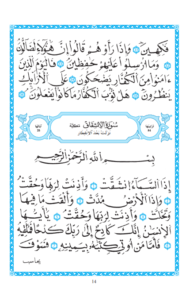 فَكِهِينَ ۝ وَإِذَا رَأَوْهُمْ قَالُوٓا۟ إِنَّ هَٰٓؤُلَآءِ لَضَآلُّونَ
۝ وَمَآ أُرْسِلُوا۟ عَلَيْهِمْ حَٰفِظِينَ ۝ فَٱلْيَوْمَ ٱلَّذِينَ
ءَامَنُوا۟ مِنَ ٱلْكُفَّارِ يَضْحَكُونَ ۝ عَلَى ٱلْأَرَآئِكِ
يَنظُرُونَ ۝ هَلْ ثُوِّبَ ٱلْكُفَّارُ مَا كَانُوا۟ يَفْعَلُونَ ۝
سُورَةُ الِانْشِقَاقِ مَكِّيَّة
نزلت بعد الانفطار
بِسْمِ ٱللَّهِ ٱلرَّحْمَٰنِ ٱلرَّحِيمِ
إِذَا ٱلسَّمَآءُ ٱنشَقَّتْ ۝ وَأَذِنَتْ لِرَبِّهَا وَحُقَّتْ
۝ وَإِذَا ٱلْأَرْضُ مُدَّتْ ۝ وَأَلْقَتْ مَا فِيهَا
وَتَخَلَّتْ ۝ وَأَذِنَتْ لِرَبِّهَا وَحُقَّتْ ۝ يَٰٓأَيُّهَا
ٱلْإِنسَٰنُ إِنَّكَ كَادِحٌ إِلَىٰ رَبِّكَ كَدْحًا فَمُلَٰقِيهِ
۝ فَأَمَّا مَنْ أُوتِىَ كِتَٰبَهُۥ بِيَمِينِهِۦ ۝ فَسَوْفَ
يحاسب
14